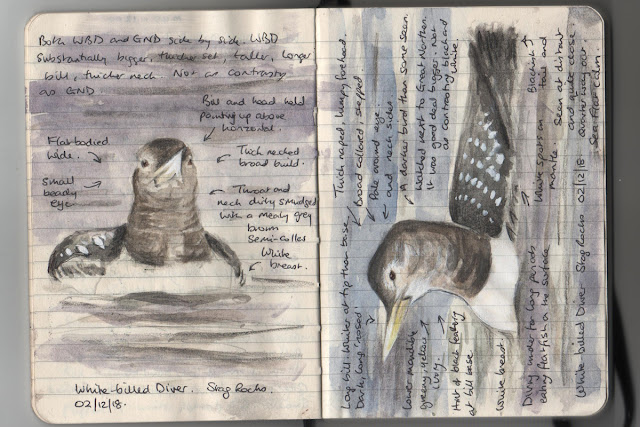 Both WBD and GND side by side. WBD
substantially bigger, thicker set, taller, longer
bill, thicker neck. Not as contrasty
as GND
Bill and head held
pointing up above
horizontal.
Flat bodied
wide.
Thick necked
broad build.
Small
beady
eye
Throat and
neck dirty smudged
with a mealy grey
brown
Semi-collar
White
breast.
White-billed Diver. Stag Rocks.
02/12/18.
Thick naped, lumpy forehead.
Broad collared, stepped
Pale around eye.
and neck sides
A darker bird than some seen.
Watched next to Great Northern.
It was good deal bigger. Not
as contrasting black and
white.
Blackish
tail and
White spots on
mantle.
Seen at distant
and quite close
quarter way out
Sea Flat Calm
Long bill whiter at tip than base.
Dark, long 'nosed'
Lower mandible
greeny, yellow
ivory.
Hint of black feathery
at bill base.
White breast.
Diving under for long periods
eating flatfish on the surface
White billed Diver Stag Rocks 02/12/18.